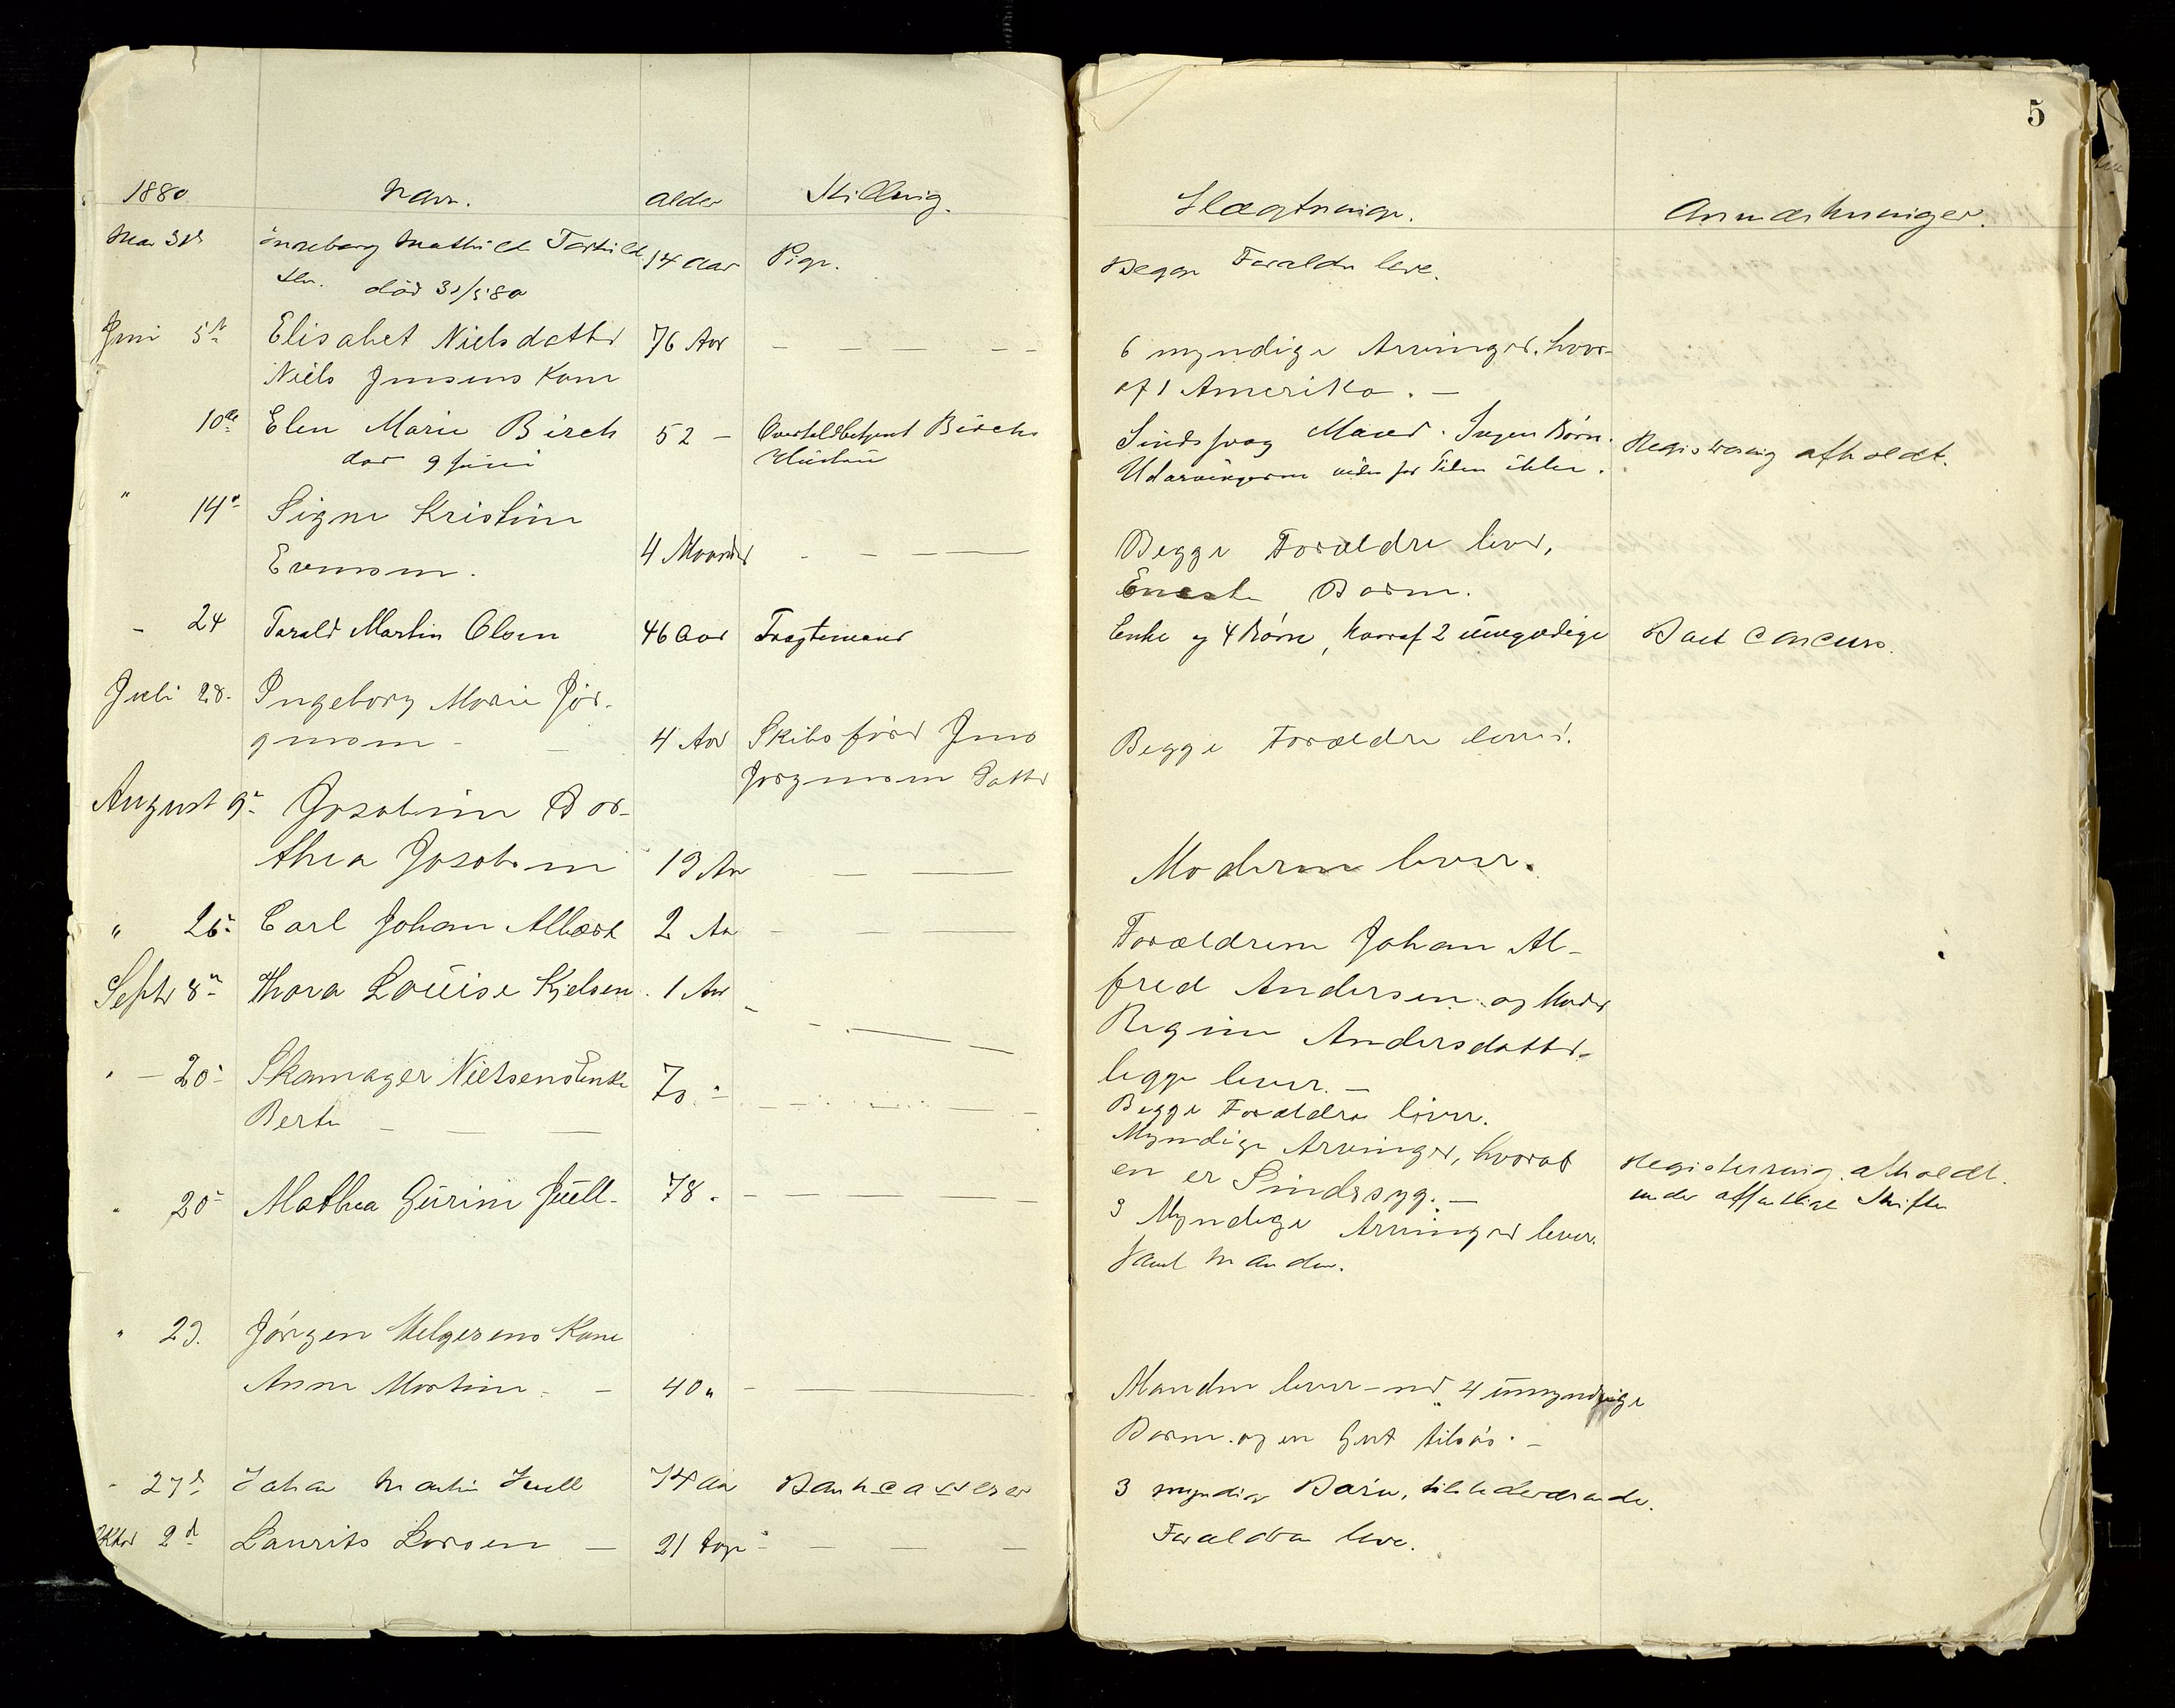 5
1880
Navn.
Alder
Stilling.
Slægtninge.
Anmærkninger.
Mai 31te
Ingeborg Mathilde
død 31/5 80
14 Aar
Pige.
Begge Forældre leve.
Juni 5te
Elisabet Nielsdatter
Niels Jensens Kone
76 Aar
6 myndige Arvinger, hvor-
af 1 Amerika. —
10de
Elen Marie Birch
død 9 Juni
52 —
Overtoldbetjent Birchs
Hustru
Sindssvag Mand. Ingen Børn.
Udarvingerne vides for Tiden ikke.
Registrering afholdt.
" 14de
Signe Kristine
Evensen.
4 Maaneder
Begge Forældre lever,
Eneste Barn.
- 24
Tarald Martin Olsen
46 Aar
Fragtemand
Enke og 4 Børn, hvoraf 2 umyndige
Boet Concurs.
Juli 28.
Ingeborg Marie Jør-
gensen -
4 Aar
Skibsfører Jens
Jørgensens Datter
Begge Forældre lever.
August 9de
Josabine Dor-
thea
19 Aar
Moderen lever.
" 26
Carl Johan Albert
2 Aar
Forældrene Johan Al-
fred Andersen og Moder
Regine Andersdatter-
begge lever. —
Septbr 8de
Thora Louise Kjelsen
1 Aar
Begge Forældre lever.
" — 20
Skomager Nielsens Enke
Berte
70
Myndige Arvinger, hvoraf
en er Sindssyg. —
Registrering afholdt.
under offentlige Skifte
" 20
Mathea Gurine Juell
78
3 Myndige Arvinger lever.
samt Manden.
" 23.
Jørgen Helgesens Kone
Anne Martine -
40 "
Manden lever med 4 umyndige
Børn og en Gut tilsøs. —
- 27de
Johan Martin Juell
74 Aar
Bankcasserer
3 myndige Børn, tilstedeværende.
Oktbr 2d
Laurits Larsen —
21 Dage
Forældre leve.